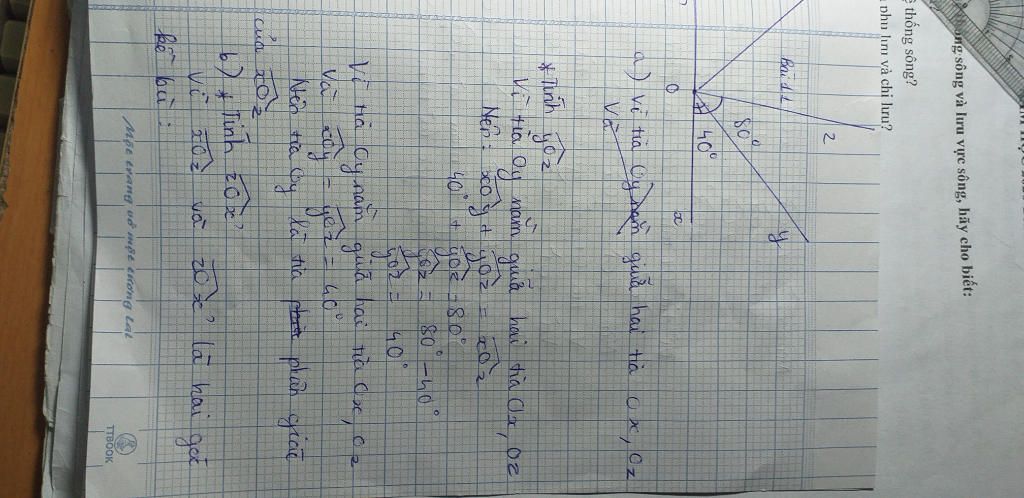 ông sông và lưu vực sông, hãy cho biết:
ệ thống sông?
phụ lưu và chi lưu?
Bài 11
z
80°
y
O
40°
x
a) Vì tia Oy nằm giữa hai tia Ox, Oz
Và
* Tính yOz
Vì tia Oy nằm giữa hai tia Ox, Oz
Nên: xOy + yOz = xOz
40° + yOz = 80°
yOz = 80° - 40°
yOz = 40°
Vì tia Oy nằm giữa hai tia Ox, Oz
Và xOy = yOz = 40°
Nên tia Oy là tia phân giác
của xOz
b) * Tính zOx'
Vì xOz và zOx' là hai góc
kề bù:
Một trang vở một tương lai
TTBOOK